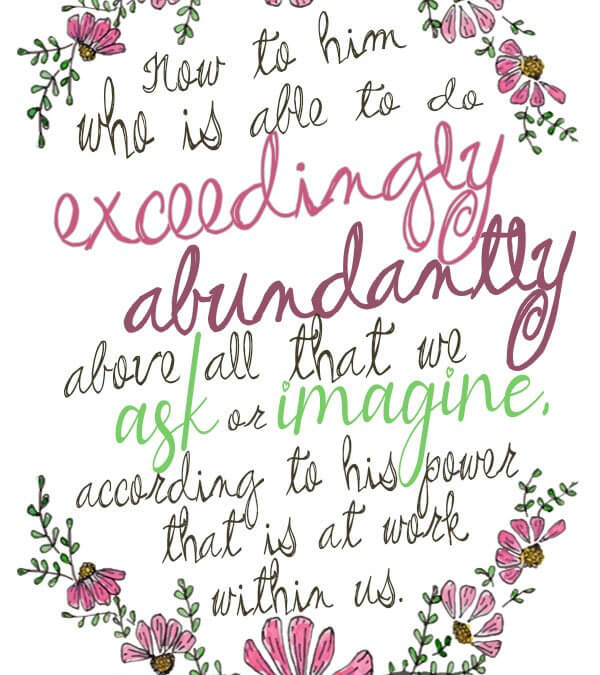 Now to him
who is able to do
exceedingly
abundantly
above all that we
ask or imagine,
according to his power
that is at work
within us.